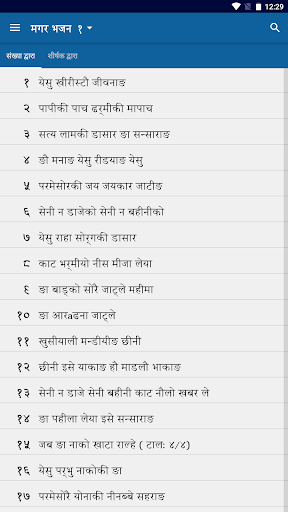 12:29
मगर भजन १
संख्या द्वारा शीर्षक द्वारा
१ येसु ख्रीरीस्टौ जीवनाङ
२ पापीकी पाच ढर्‌मीकी मापाच
३ सत्य लामकी डासार ङा सन्साराङ
४ ङौ मनाङ येसु रीडयाङ येसु
५ परमेसोरकी जय जयकार जाटीङ
६ सेनी न डाजेको सेनी न बहीनीको
७ येसु राहा सोर्‌गकी डासार
८ काट भर्‌मीयो नीस मीजा लेया
९ ङा बाड्को सोरै जाट्ले महीमा
१० ङा आरaढना जाट्ले
११ खुसीयाली मन्डीयीङ छीनी
१२ छीनी इसे याकाङ हौ माडलौ भाकाङ
१३ सेनी न डाजे सेनी बहीनी काट नौलो खबर ले
१४ ङा पहीला लेया इसे सन्साराङ
१५ जब ङा नाको खाटा राल्हे ( टाल: ४/४)
१६ येसु पर्‌भु नाकोकी ङा
१७ परमेसोरै योनाकी नीनब्बे सहराङ